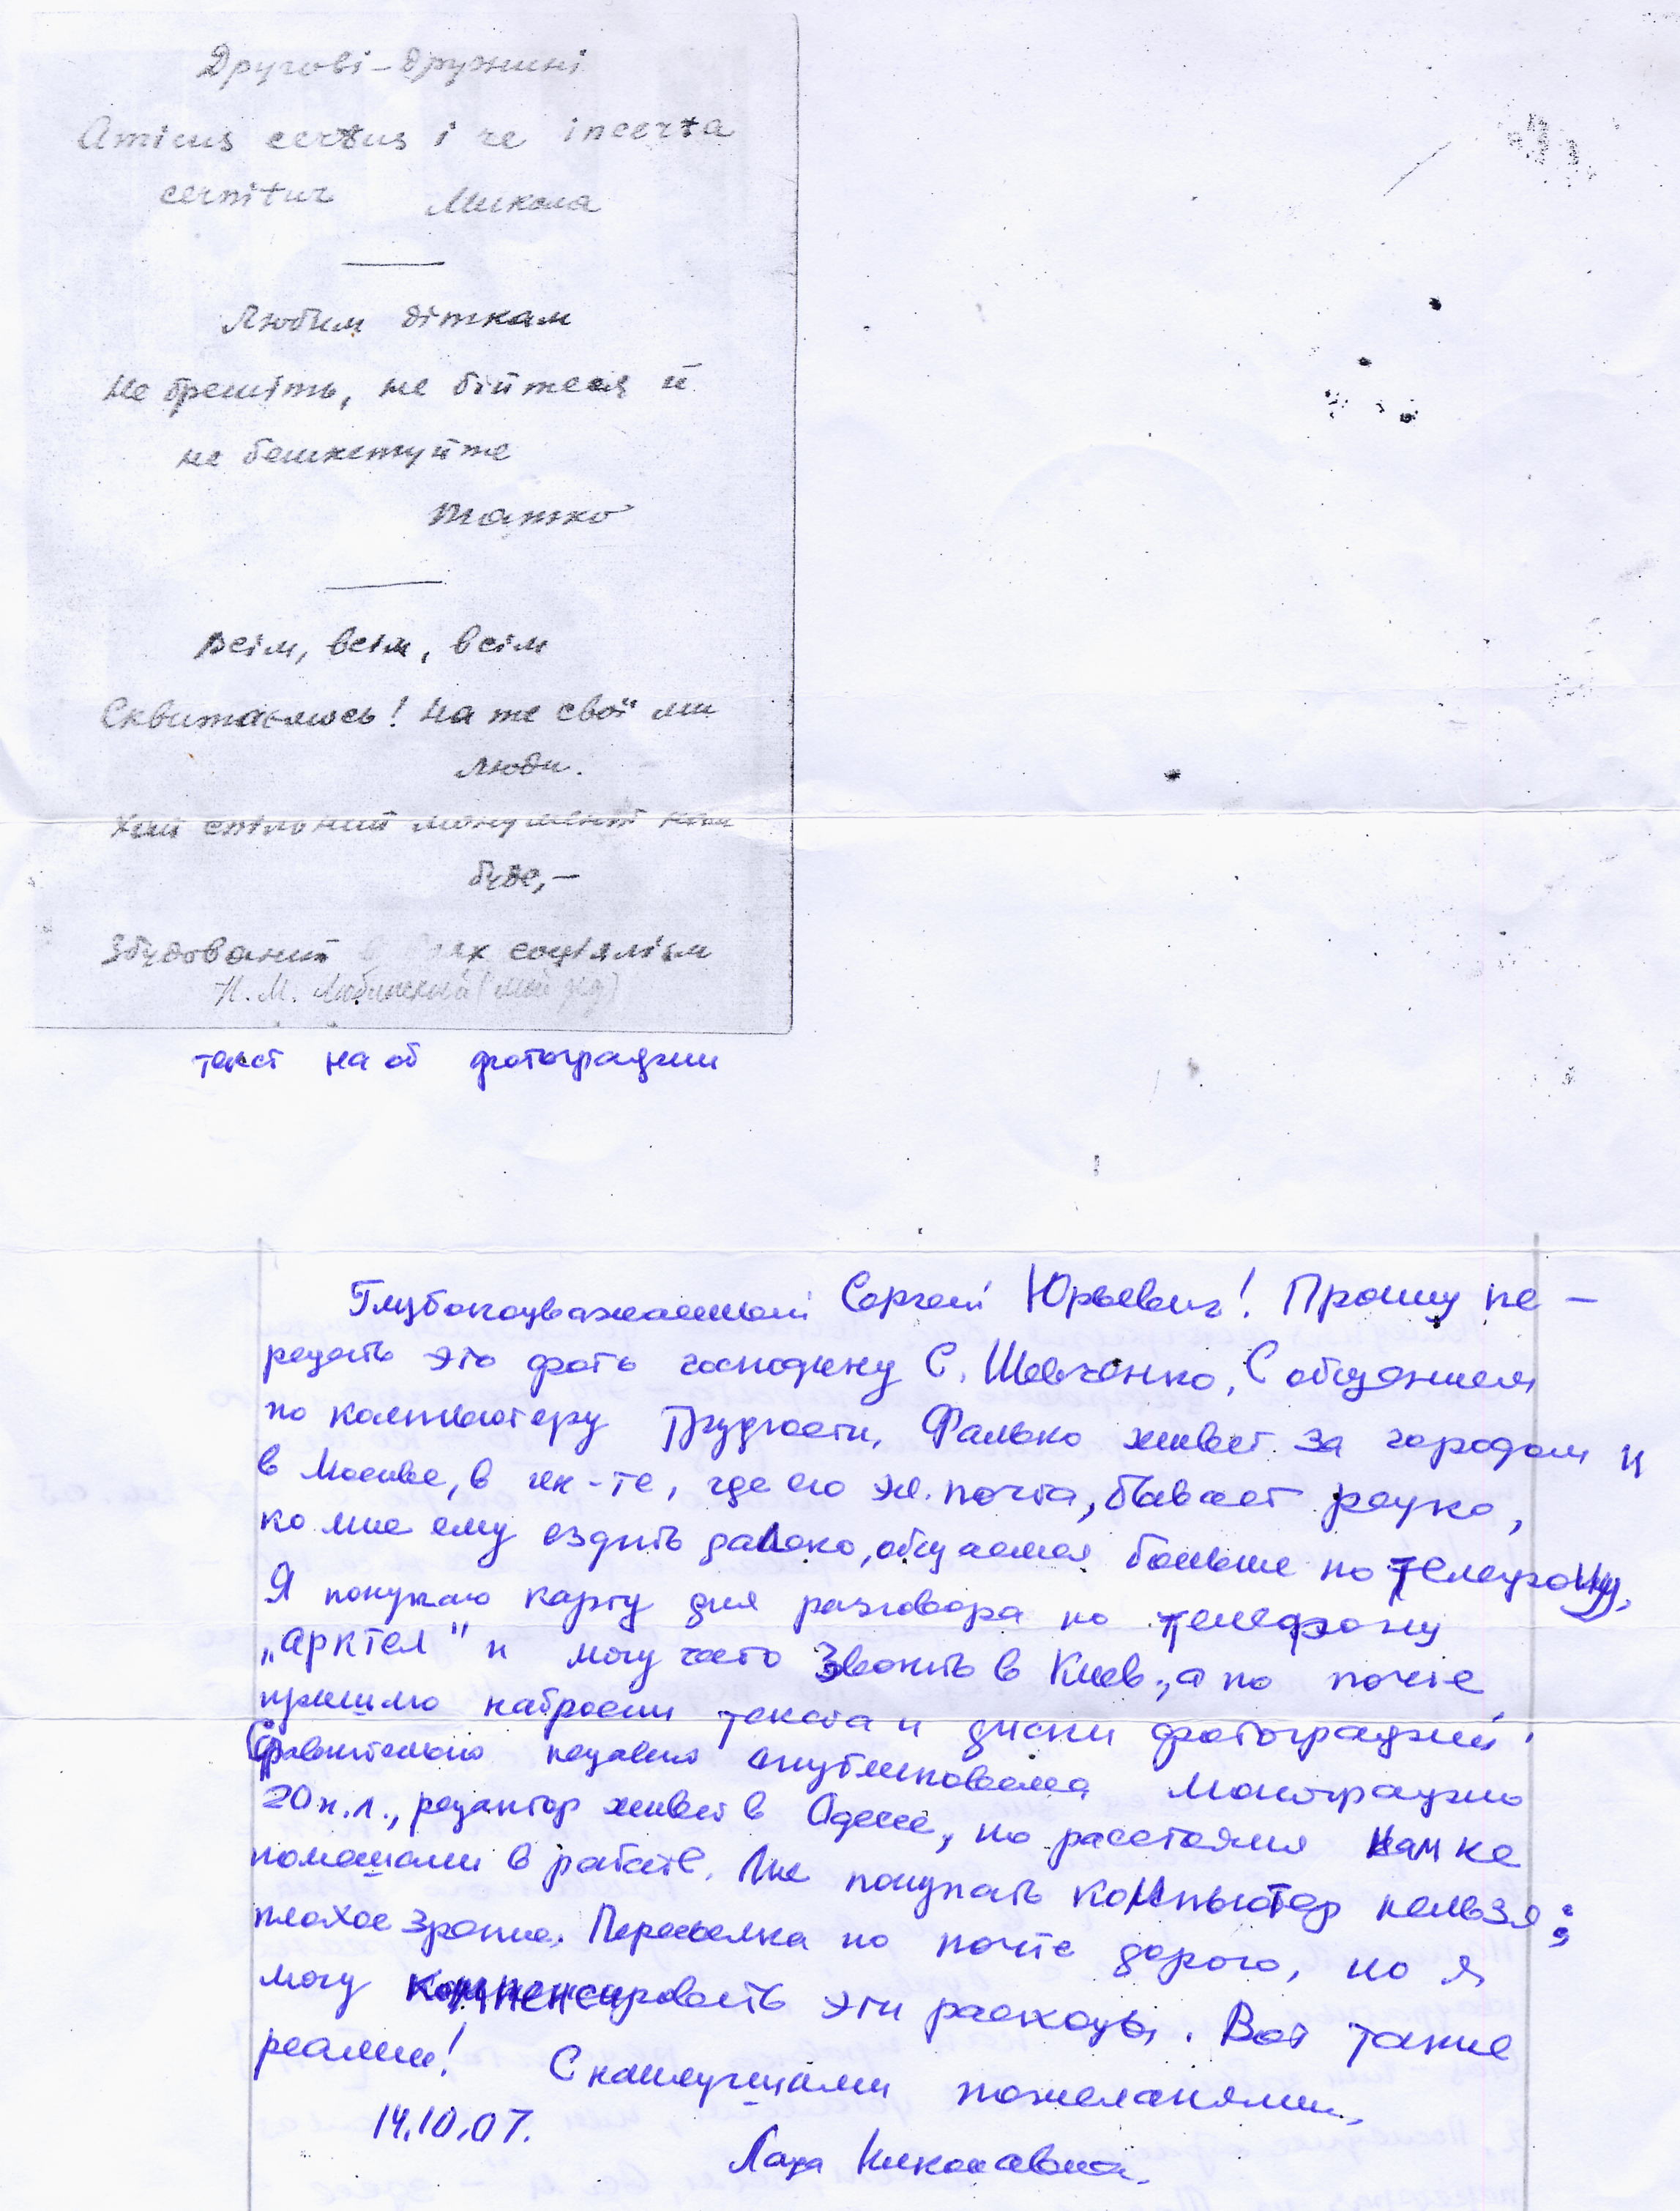 Другові-дружині
Amicus certus i re incerta
cernitur Микола
Любим діткам
Не брешіть, не бійтеся й
не бешкетуйте
Татко
Всім, всім, всім
Сквитаємось! На те свої ми
люди.
Хай спільний монумент нам
буде,—
Збудований в боях соціялізм
Н. М. Любинский (мой дед)
текст на об фотографии
Глубокоуважаемый Сергей Юрьевич! Прошу пе-
редать это фото господину С. Шевченко, С общением
по компьютеру трудности, Фалько живет за городом и
в Москве, в ин-те, где его эл. почта, бывает редко,
ко мне ему ездить далеко, общаемся больше по телефону,
Я покупаю карту для разговора по телефону
„Арктел" и могу часто звонить в Киев, а по почте
пришлю наброски текста и диски фотографий.
Сравнительно недавно опубликовала монографию
20 п.л., редактор живет в Одессе, но расстояния нам не
помешали в работе. Мне покупать компьютер нельзя:
плохое зрение. Пересылка по почте дорого, но я
могу компенсировать эти расходы. Вот такие
реалии! С наилучшими пожеланиями,
14.10.07.
Лада Николаевна.